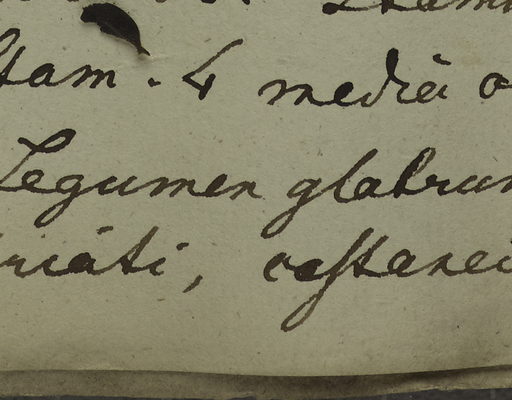 Stam
Stam. 4 mediâ o
Legumen glabrum
riáti, castanei